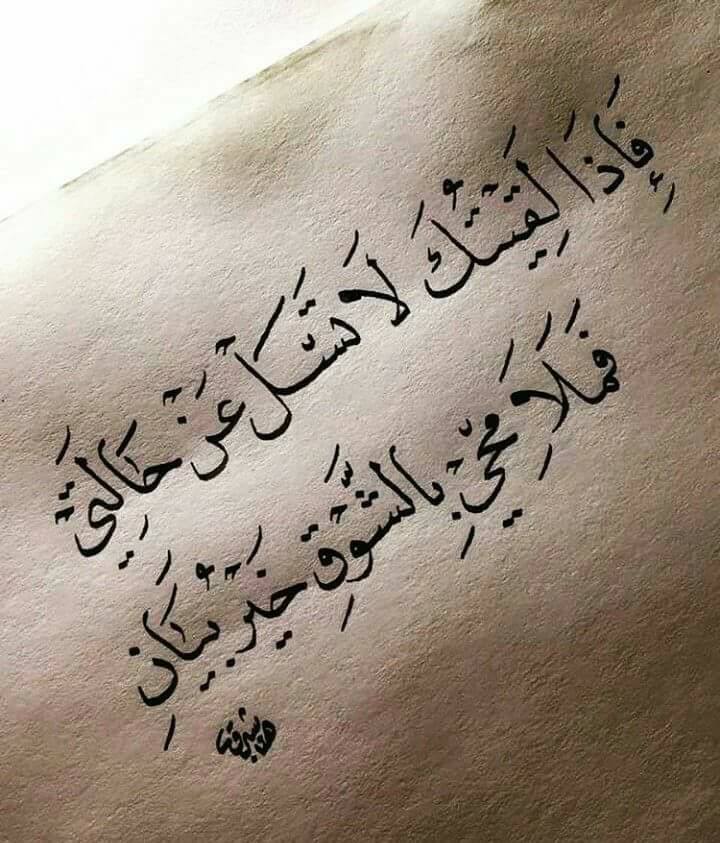 فَإِذَا لَقِيتُكَ لَا تَسَلْ عَنْ حَالَتِي
فَمَلَامِحِي بِالشَّوْقِ خَيْرُ بَيَانِ